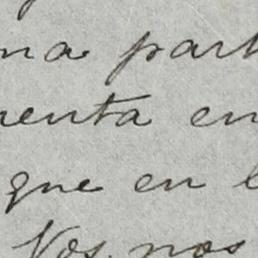 na part
enta en
que en
Vos, nos